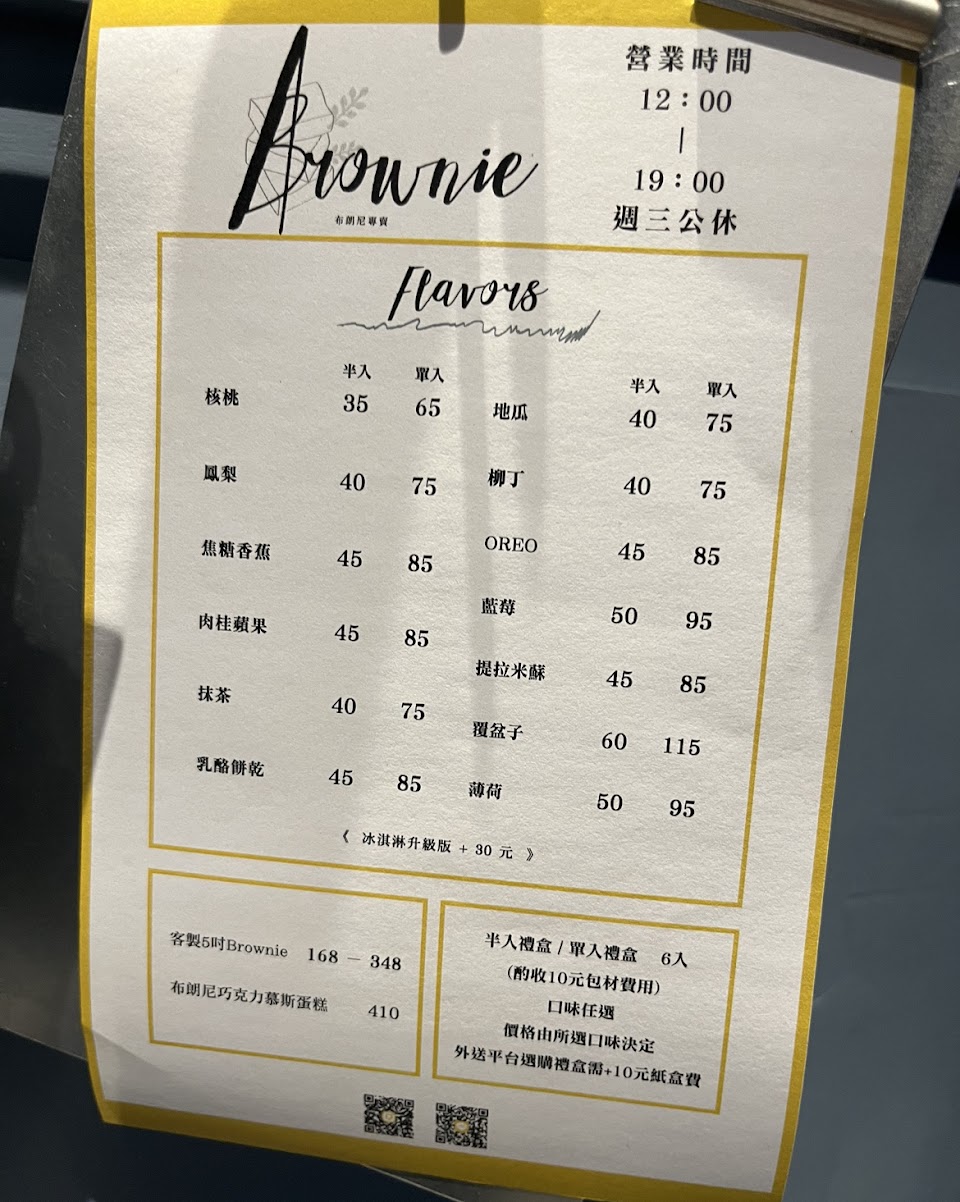 Brownie
布朗尼專賣
營業時間
12：00
|
19：00
週三公休
Flavors
半入 單入
核桃 35 65
鳳梨 40 75
焦糖香蕉 45 85
肉桂蘋果 45 85
抹茶 40 75
乳酪餅乾 45 85
半入 單入
地瓜 40 75
柳丁 40 75
OREO 45 85
藍莓 50 95
提拉米蘇 45 85
覆盆子 60 115
薄荷 50 95
《 冰淇淋升級版 + 30 元 》
客製5吋Brownie 168 － 348
布朗尼巧克力慕斯蛋糕 410
半入禮盒 / 單入禮盒 6入
（酌收10元包材費用）
口味任選
價格由所選口味決定
外送平台選購禮盒需+10元紙盒費